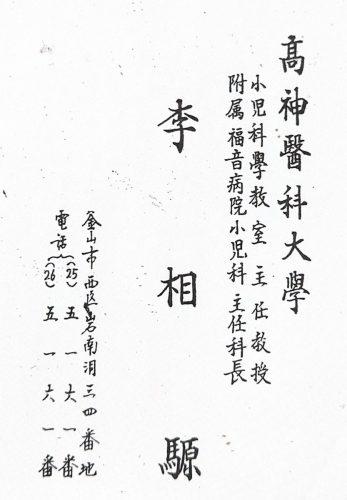 髙神醫科大學
小児科學教室 主任教授
附属福音病院小児科 主任科長
李相騵
釜山市西区岩南洞三四番地
電話 (25) 五一六一番
(26) 五一六一番